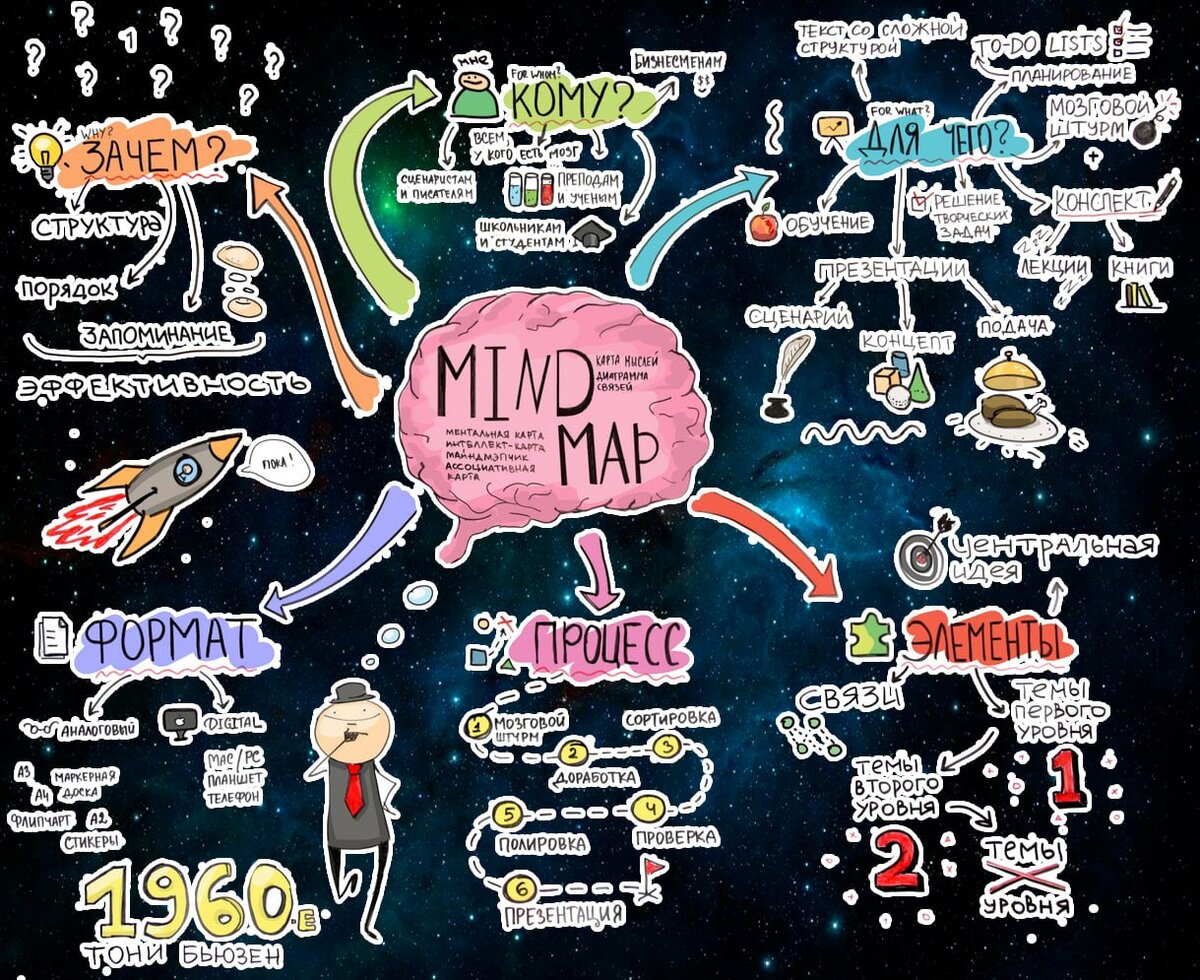 MIND
MAP
КАРТА МЫСЛЕЙ
ДИАГРАММА
СВЯЗЕЙ
МЕНТАЛЬНАЯ КАРТА
ИНТЕЛЛЕКТ-КАРТА
МАЙНДМЭПЧИК
АССОЦИАТИВНАЯ
КАРТА
? ? 1 ? ? ? ? ? ?
WHY?
ЗАЧЕМ?
СТРУКТУРА
ПОРЯДОК
ЗАПОМИНАНИЕ
ЭФФЕКТИВНОСТЬ
ПОКА!
МНЕ
FOR WHOM?
КОМУ?
БИЗНЕСМЕНАМ
$$
ВСЕМ,
У КОГО ЕСТЬ МОЗГ
СЦЕНАРИСТАМ
И ПИСАТЕЛЯМ
ПРЕПОДАМ
И УЧЕНЫМ
ШКОЛЬНИКАМ
И СТУДЕНТАМ
ТЕКСТ СО СЛОЖНОЙ
СТРУКТУРОЙ
TO-DO LISTS
ПЛАНИРОВАНИЕ
FOR WHAT?
ДЛЯ ЧЕГО?
МОЗГОВОЙ
ШТУРМ
+
КОНСПЕКТ
ЛЕКЦИИ
КНИГИ
ОБУЧЕНИЕ
РЕШЕНИЕ
ТВОРЧЕСКИХ
ЗАДАЧ
ПРЕЗЕНТАЦИИ
СЦЕНАРИЙ
КОНЦЕПТ
ПОДАЧА
ФОРМАТ
АНАЛОГОВЫЙ
DIGITAL
А3
МАРКЕРНАЯ
ДОСКА
А4
ФЛИПЧАРТ
А2
СТИКЕРЫ
MAC/PC
ПЛАНШЕТ
ТЕЛЕФОН
1960-Е
ТОНИ БЬЮЗЕН
ПРОЦЕСС
1
МОЗГОВОЙ
ШТУРМ
2
ДОРАБОТКА
3
СОРТИРОВКА
4
ПРОВЕРКА
5
ПОЛИРОВКА
6
ПРЕЗЕНТАЦИЯ
ЭЛЕМЕНТЫ
ЦЕНТРАЛЬНАЯ
ИДЕЯ
СВЯЗИ
ТЕМЫ
ПЕРВОГО
УРОВНЯ
1
ТЕМЫ
ВТОРОГО
УРОВНЯ
2
ТЕМЫ
X
УРОВНЯ